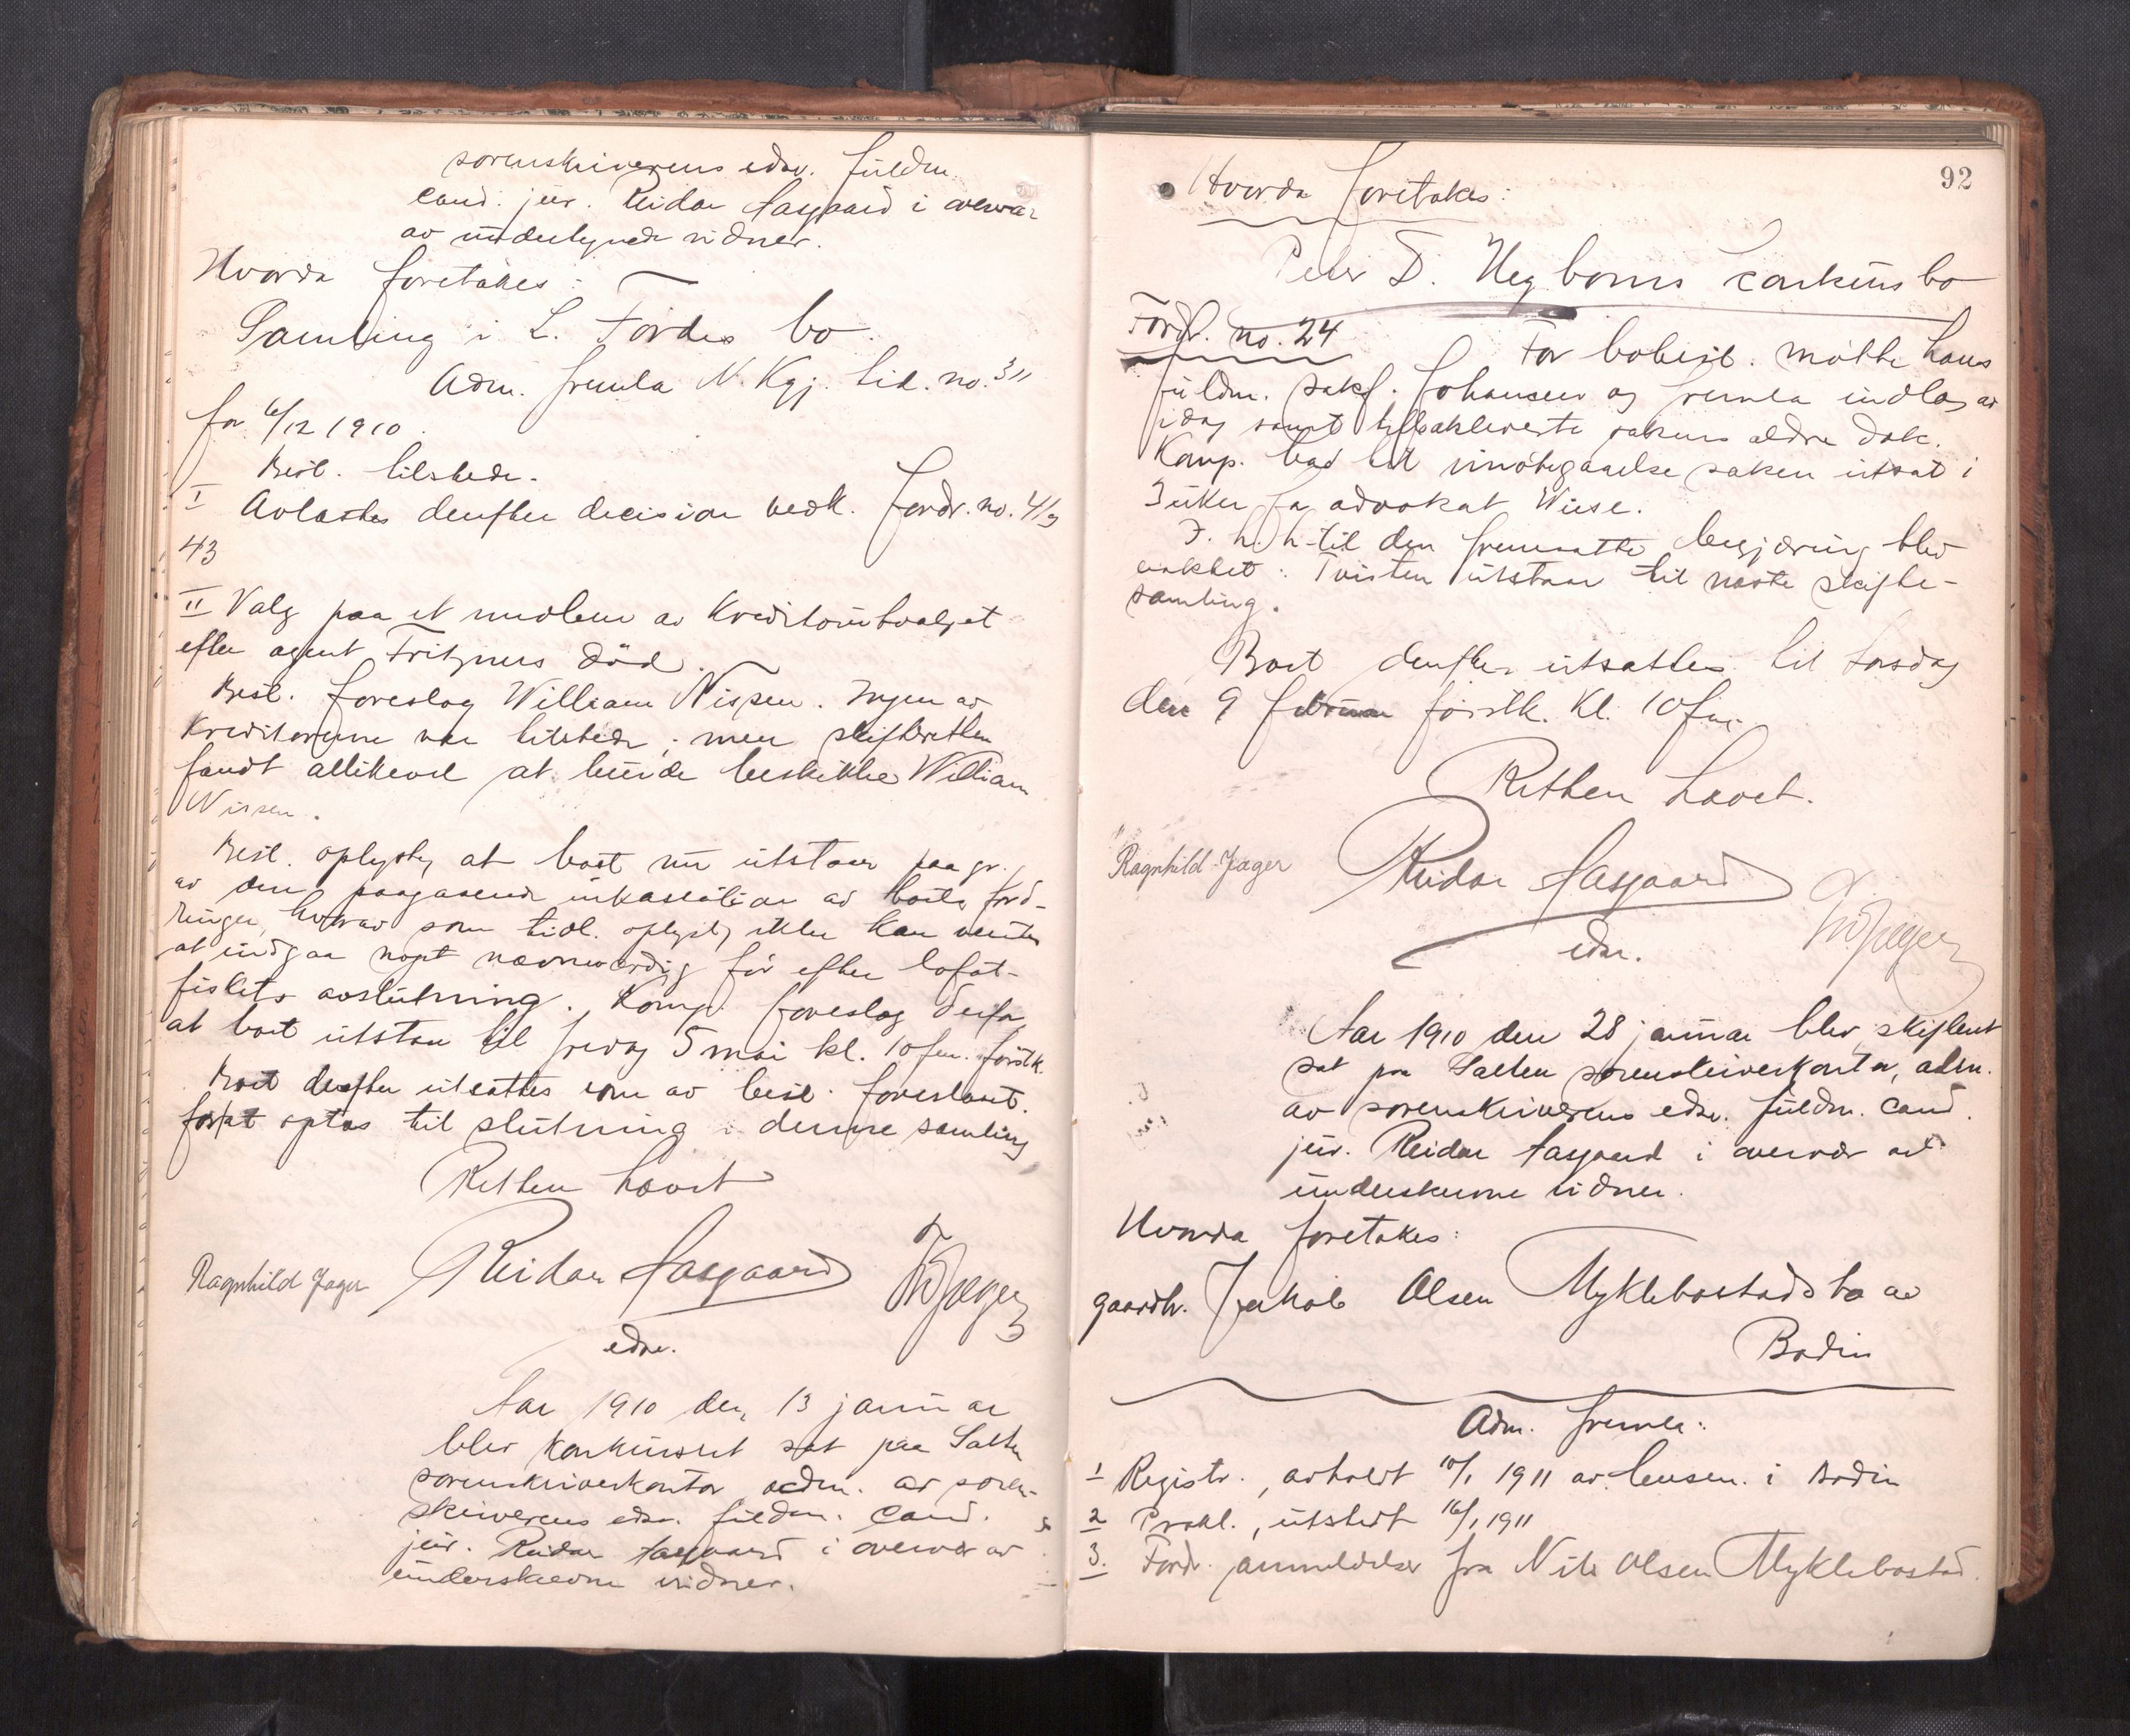 sorenskriverens edsv. fuldm.
cand. jur. Reidar Aasgaard i overvær
av undertegnede vidner.
Hvorda foretokes:
Samling i L. Fördes bo.
Adm. fremla N. Kgj. tid. no. 311
for 6/12 1910.
Best. tilstede.
I Avlastes derefter decision vedk. fordr. no. 41 og
43
II Valg paa et medlem av Kreditorutvalget
efter agent Fritzners död.
Best. foreslog William Nissen. Ingen av
kreditorerne var tilstede; men skifteretten
fandt allikevel at burde beskikke William
Nissen.
Best. oplyste, at boet nu utstaar paa gr.
av den paagaaende inkassation av boets ford-
ringer, hvorav som tidl. oplyst, ikke kan ventes
at indgaa nogt nævneværdig för efter lofot-
fiskets avslutning. Komp. foreslog derfor,
at boet utstaar til fredag 5 mai kl. 10 fm. förstk.
Boet derefter utsattes som av best. foreslaaet.
for at optas til slutning i denne samling
Retten hævet
Ragnhild Jæger Reidar Aasgaard
edsv.
Aar 1910 den 13 januar
blev konkursret sat paa Salten
sorenskriverkontor adm. av soren-
skriverens edsv. fuldm. cand.
jur. Reidar Aasgaard i overvær av
underskrevne vidner.
92
Hvorda foretokes:
Peter D. Hegboms konkursbo
Fordr. no. 24
For bobest. mötte hans
fuldm. sakf. Johansen og fremla indlæg av
idag samt tilbakleverte sakens ældre dok.
Komp. bad til imötegaaelse saken utsat i
3 uker fra advokat Wiese.
I. h. h. til den fremsatte begjæring blev
vakket: Tvisten utstaar til næste skifte-
samling.
Boet derefter utsattes til torsdag
den 9 februar förstk. kl. 10 fm.
Retten hævet.
Ragnhild Jæger Reidar Aasgaard
edsv.
Aar 1910 den 28 januar blev skifteret
sat paa Salten sorenskriverkontor, adm.
av sorenskriverens edsv. fuldm. cand.
jur. Reidar Aasgaard i overvær av
underskrevne vidner.
Hvorda foretokes:
gaardbr. Jakob Olsen Myklebostads bo av
Bodin
Adm. fremla:
1 Registr., avholdt 10/1 1911 av lensm. i Bodin
2 Prokl., utstedt 16/1 1911
3. Fordr. anmeldelser fra Nils Olsen Myklebostad.